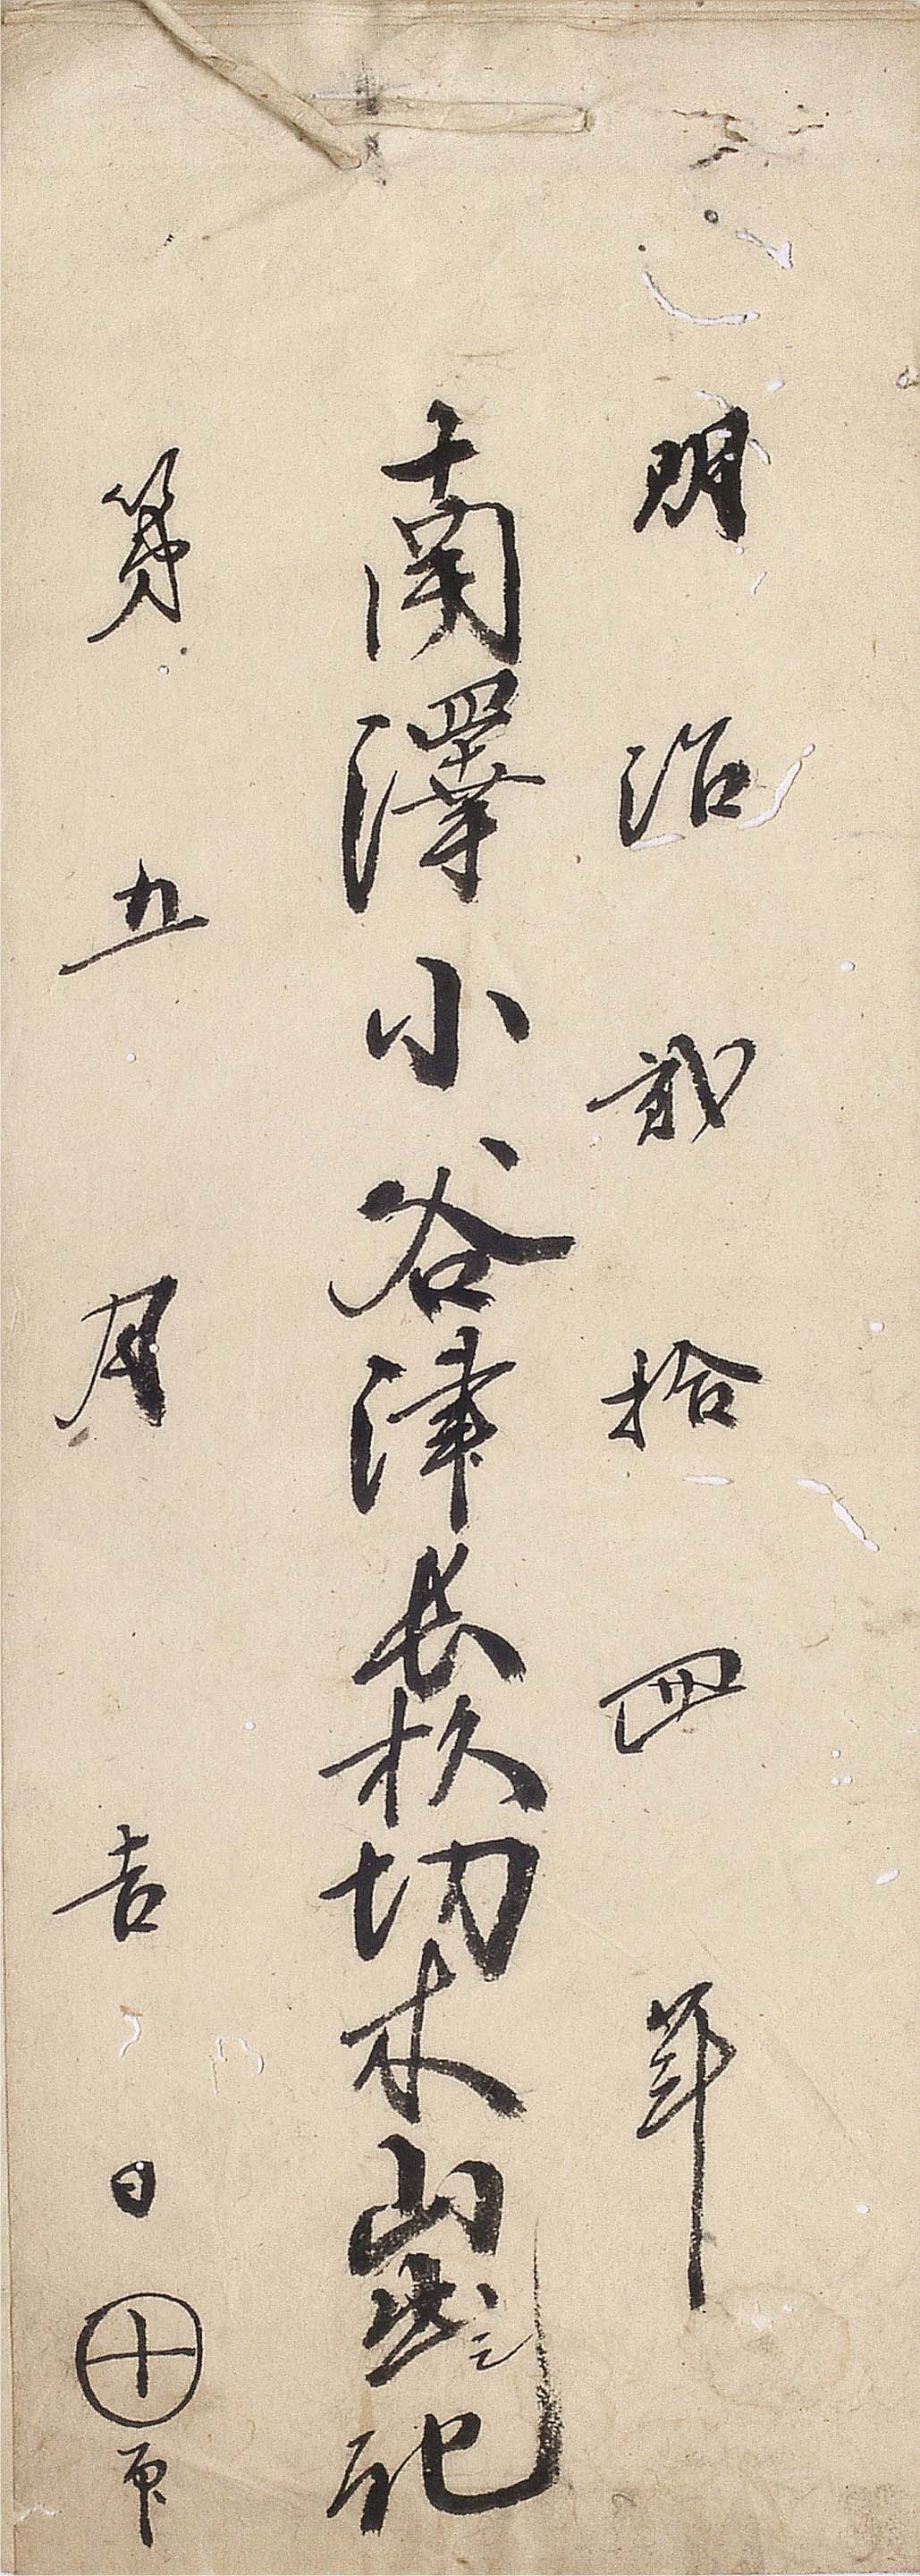 明治貳拾四年
南澤小谷津長杉切木山出シ記
第五月吉日